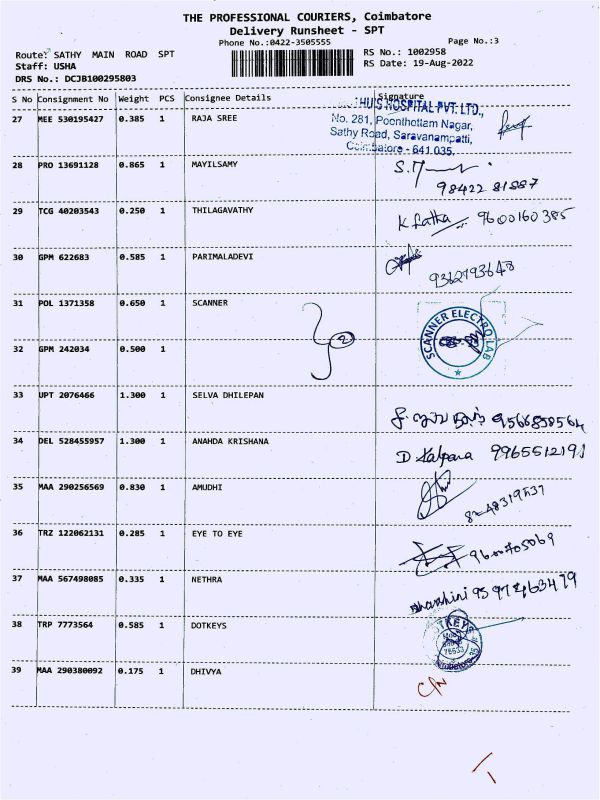 THE PROFESSIONAL COURIERS, Coimbatore
Delivery Runsheet - SPT
Phone No.:0422-3505555
Page No.:3
Route: SATHY MAIN ROAD SPT
RS No.: 1002958
Staff: USHA
RS Date: 19-Aug-2022
DRS No.: DCJB100295803
S No Consignment No Weight PCS Consignee Details Signature
27 MEE 530195427 0.385 1 RAJA SREE
HOSPITAL PVT. LTD.,
No. 281, Poonthottam Nagar,
Sathy Road, Saravanampatti,
Coimbatore - 641 035.
28 PRO 13691128 0.865 1 MAYILSAMY
98422 81887
29 TCG 40203543 0.250 1 THILAGAVATHY K Latha 9600160385
30 GPM 622683 0.585 1 PARIMALADEVI
9362793648
31 POL 1371358 0.650 1 SCANNER
SCANNER ELECTRO LAB
2
32 GPM 242034 0.500 1
33 UPT 2076466 1.300 1 SELVA DHILEPAN 9566858564
34 DEL 528455957 1.300 1 ANAHDA KRISHANA D Kalpana 9965512191
35 MAA 290256569 0.830 1 AMUDHI
36 TRZ 122062131 0.285 1 EYE TO EYE
9600705069
37 MAA 567498085 0.335 1 NETHRA
38 TRP 7773564 0.585 1 DOTKEYS
39 MAA 290380092 0.175 1 DHIVYA